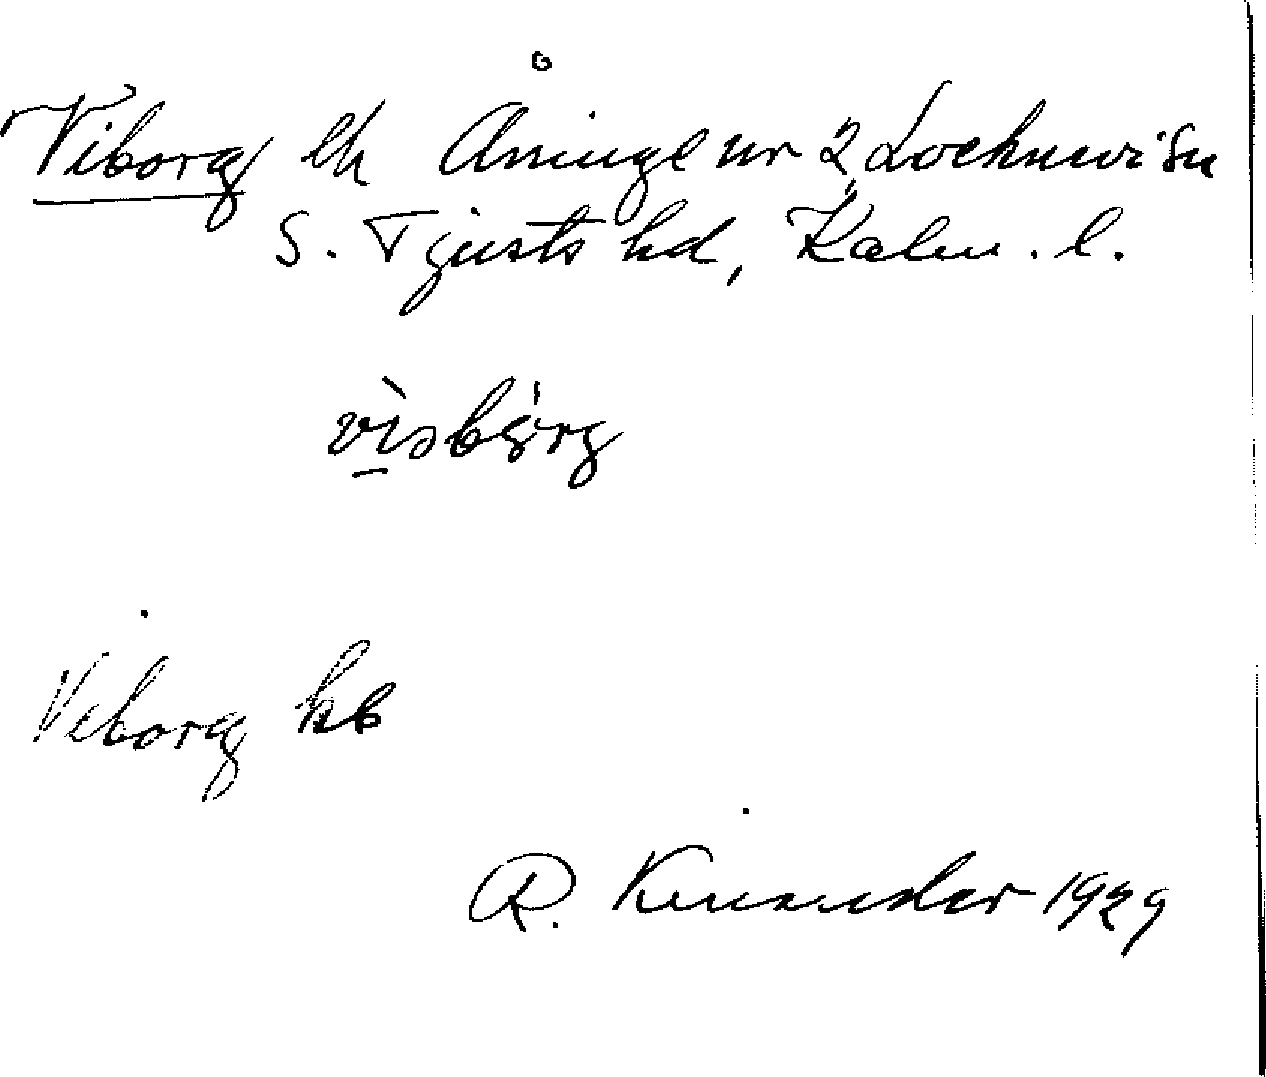 Viborg lh Åninge nr 2 Locknevi sn
S. Tjusts hd, Kalm. l.
vìsbårg
Viborg kb
R. Kinander 1929